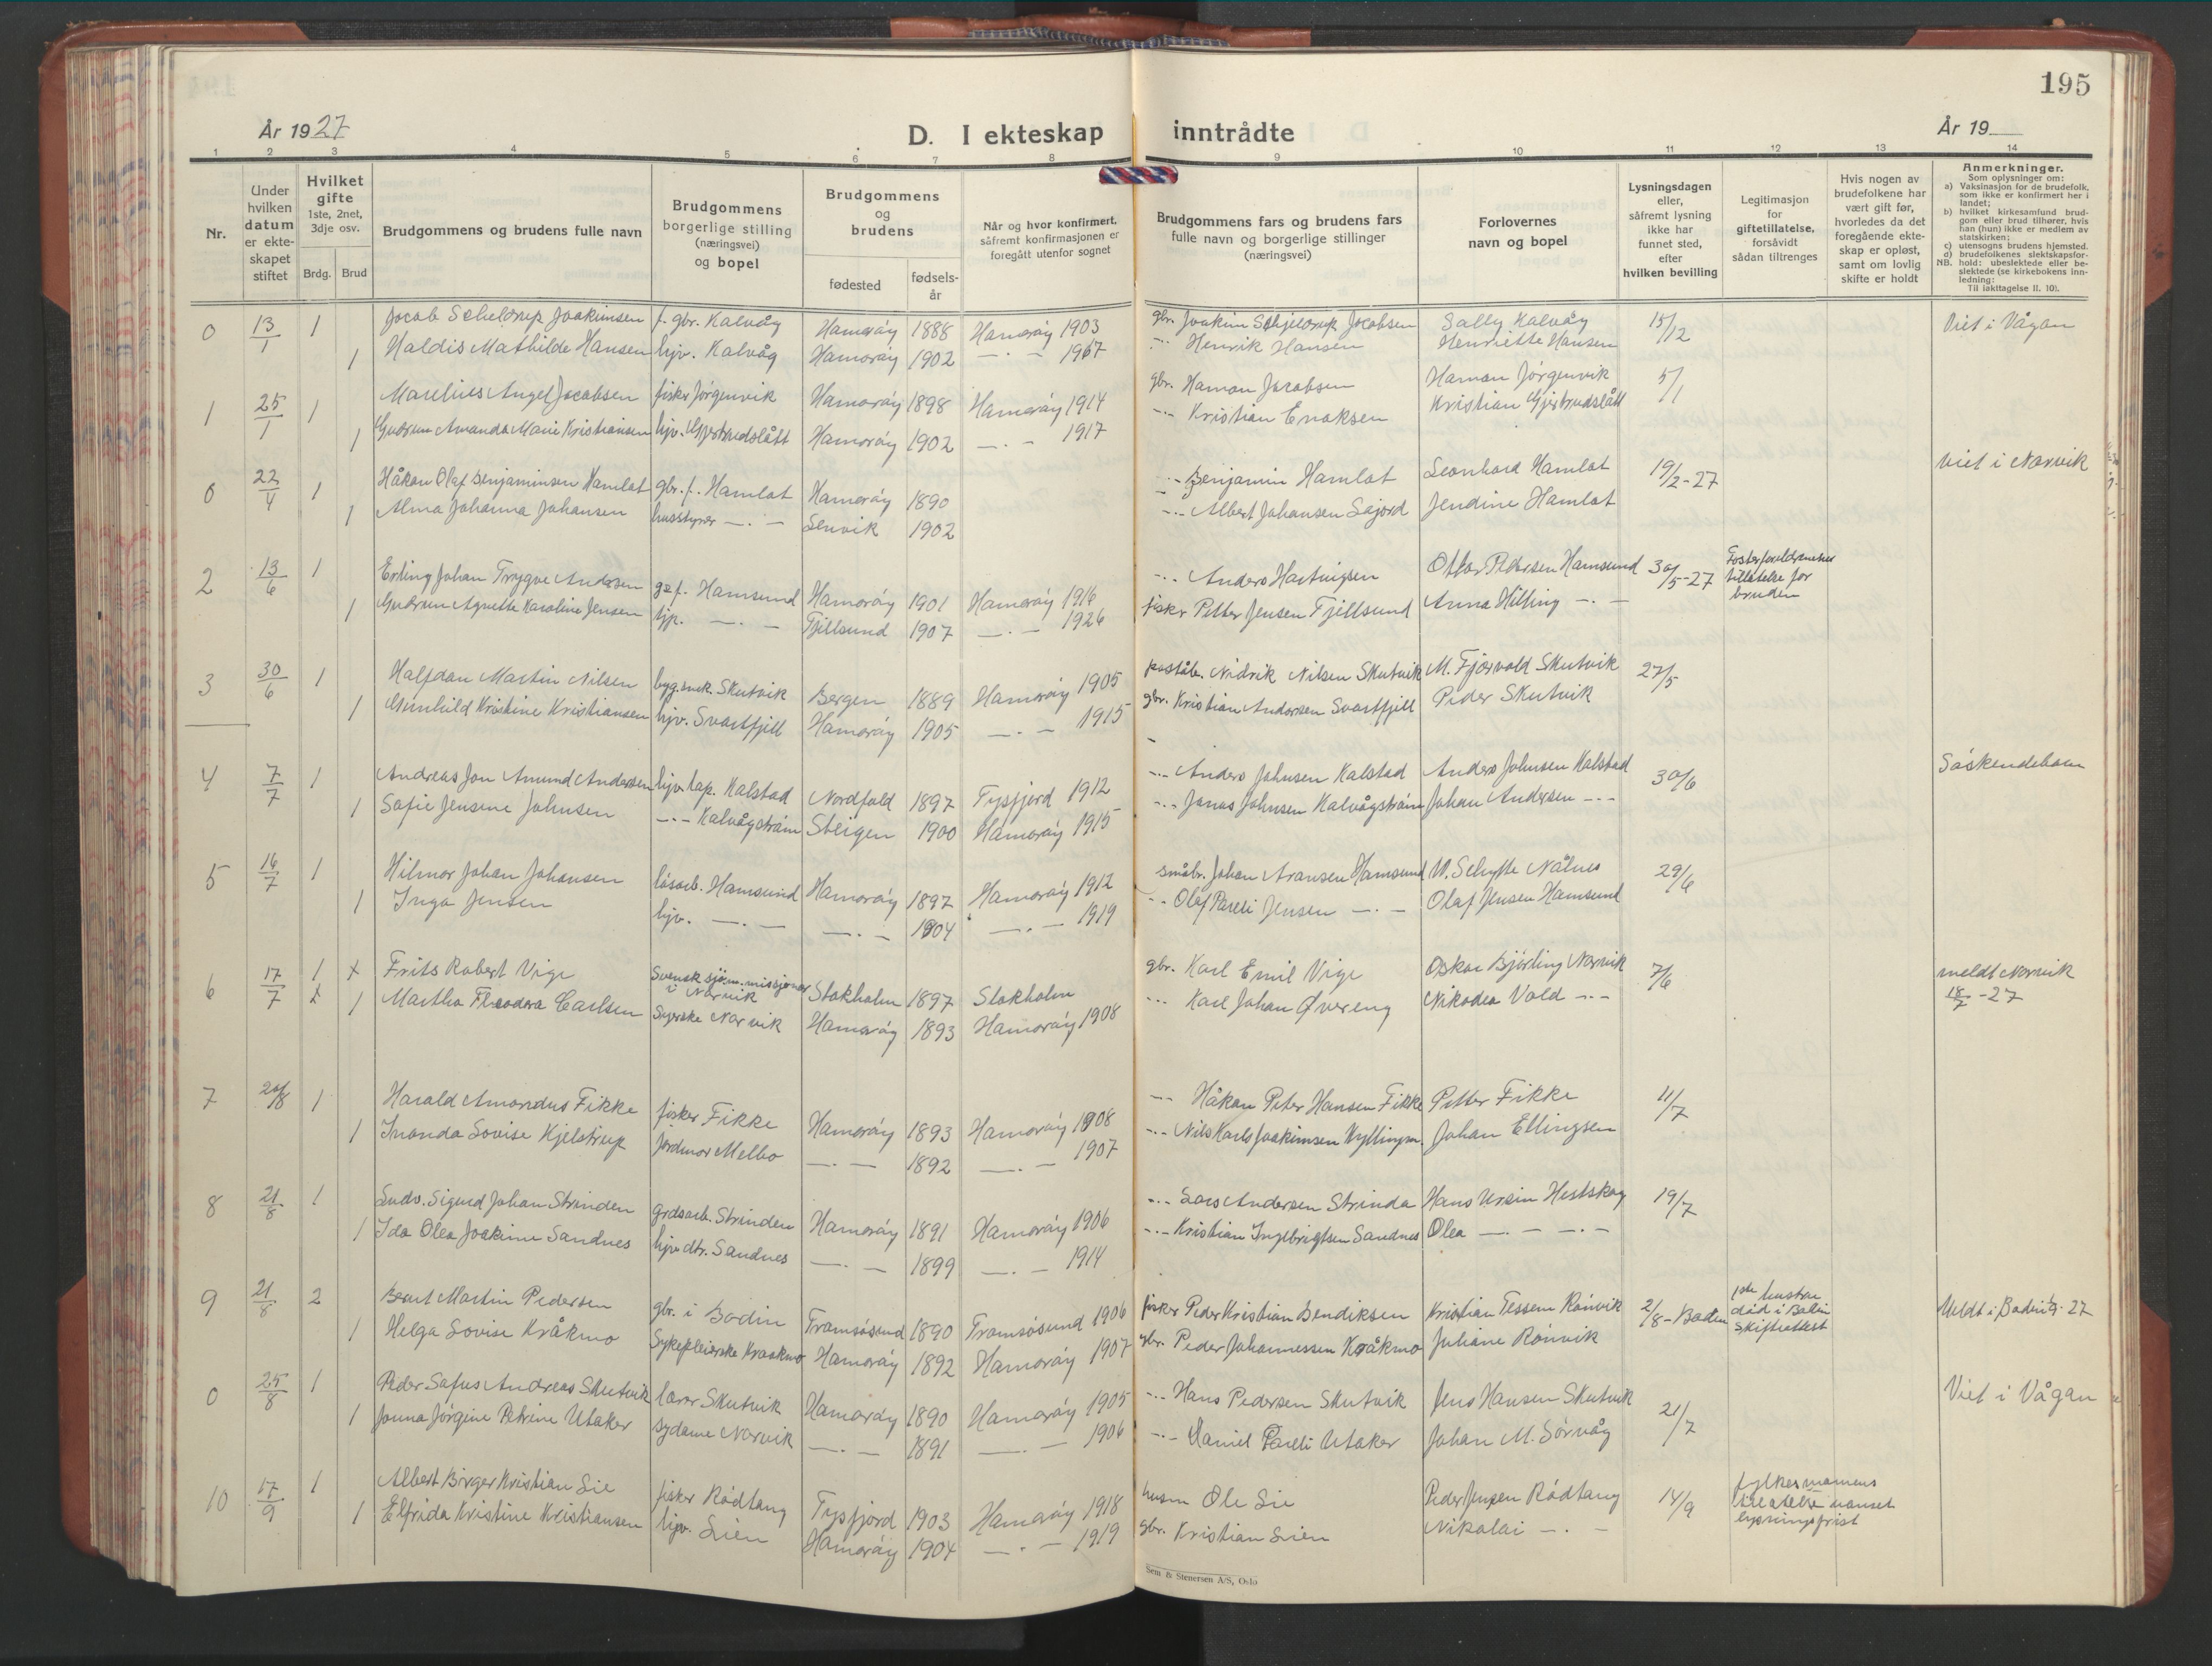 195
År 1927
D. I ekteskap inntrådte
År 19
1 2 3 4 5 6 7 8 9 10 11 12 13 14
Nr.
Under hvilken datum er ekte-skapet stiftet
Hvilket gifte 1ste, 2net, 3dje osv.
Brdg. Brud
Brudgommens og brudens fulle navn
Brudgommens borgerlige stilling (næringsvei) og bopel
Brudgommens og brudens
fødested
fødsels-år
Når og hvor konfirmert, såfremt konfirmasjonen er foregått utenfor sognet
Brudgommens fars og brudens fars fulle navn og borgerlige stillinger (næringsvei)
Forlovernes navn og bopel
Lysningsdagen eller, såfremt lysning ikke har funnet sted, efter hvilken bevilling
Legitimasjon for giftetillatelse, forsåvidt sådan tiltrenges
Hvis nogen av brudefolkene har vært gift før, hvorledes da det foregående ekte-skap er opløst, samt om lovlig skifte er holdt
Anmerkninger.
Som oplysninger om:
a) Vaksinasjon for de brudefolk, som ikke er konfirmert her i landet;
b) hvilket kirkesamfund brud-gom eller brud tilhører, hvis han (hun) ikke er medlem av statskirken;
c) utensogns brudens hjemsted.
d) brudefolkenes slektskapsfor-hold: ubeslektede eller be-slektede (se kirkebokens inn-ledning:
NB.
Til iakttagelse II. 10).
0 13/1 1 Jacob Scheldrup Joakimsen f. gbr. Kalvåg Hamarøy 1888 Hamarøy 1903 gbr. Joakim Schjeldrup Jacobsen Sally Kalvåg 15/12 Viet i Vågan
1 Haldis Mathilde Hansen hjv. Kalvåg Hamarøy 1902 —.— 1967 -.- Henrik Hansen Henriette Hansen
1 25/1 1 Marelius Angel Jacobsen fisker Jørgenvik Hamarøy 1898 Hamarøy 1914 gbr. Haman Jacobsen Haman Jørgenvik 5/1
1 Gudrun Amanda Marie Kristiansen hjv. Gjertrudslått Hamarøy 1902 —.— 1917 -.- Kristian Enoksen Kristian Gjertrudslått
0 22/4 1 Håkon Olaf Benjaminsen Hamlot gbr. f. Hamlot Hamarøy 1890 -.- Benjamin Hamlot Leonhard Hamlot 19/2-27 viet i Narvik
1 Alma Johanna Johansen husstyrer —.— Lenvik 1902 -.- Albert Johansen Sajord Jendine Hamlot
2 13/6 1 Erling Johan Trygve Andersen gbr. f. Hamsund Hamarøy 1901 Hamarøy 1916 -.- Anders Hartvigsen Ottar Pedersen Hamsund 30/5-27 Fosterforeldrenes tillatelse for bruden
1 Gudrun Agnette Karoline Jensen hjp. —.— Tjellsund 1907 —.— 1926 fisker Petter Jensen Tjellsund Anna Hilling —.—
3 30/6 1 Halfdan Martin Nilsen byg.snek. Skutvik Bergen 1889 Hamarøy 1905 poståb. Nidrik Nilsen Skutvik M. Fjørvold Skutvik 27/5
1 Gunhild Kristine Kristiansen hjv. Svartfjell Hamarøy 1905 —.— 1915 gbr. Kristian Andersen Svartfjell Peder Skutvik
4 7/7 1 Andreas Jon Amund Andersen hjv. lap. Kalstad Nordfold 1897 Tysfjord 1912 -.- Anders Johnsen Kalstad Anders Johnsen Kalstad 30/6 Søskendebarn
1 Sofie Jensine Johnsen -.- Kalvågstrøm Steigen 1900 Hamarøy 1915 -.- Jonas Johnsen Kalvågstrøm Johan Andersen -.-
5 16/7 1 Hilmar Johan Johansen løsarb. Hamsund Hamarøy 1897 Hamarøy 1912 småbr. Johan Aransen Hamsund W. Schytte Nålnes 29/6
1 Inga Jensen hjv. —.— —.— 1904 —.— 1919 -.- Olaf Pareli Jensen —.— Olaf Jensen Hamsund
6 17/7 1 x Frits Robert Vige Svensk sjøm.missjonær i Narvik Stokholm 1897 Stokholm gbr. Karl Emil Vige Oskar Bjørling Narvik 7/6 meldt Narvik 18/7-27
x 1 Martha Fleodora Carlsen Syerske Narvik Hamarøy 1893 Hamarøy 1908 -.- Karl Johan Øvereng Nikodea Vold -.-
7 20/8 1 Harald Amandus Fikke fisker Fikke Hamarøy 1893 Hamarøy 1908 -.- Håkon Peter Hansen Fikke Petter Fikke 11/7
1 Inanda Lovise Kjelstrup Jordmor Melbo —.— 1892 —.— 1907 -.- Nils Karls Joakimsen Kyllingm. Johan Ellingsen
8 21/8 1 Ludv. Sigurd Johan Strinden grdsarb. Strinden Hamarøy 1891 Hamarøy 1906 -.- Lars Andersen Strinda Hans Ursin Hestskog 19/7
1 Ida Olea Joakime Sandnes hjv. dtr. Sandnes —.— 1899 —.— 1914 -.- Kristian Ingebrigtsen Sandnes Olea — — —.—
9 21/8 2 Berut Martin Pedersen gbr. i Bodin Tromsøsund 1890 Tromsøsund 1906 fisker Peder Kristian Bendiksen Kristian Tessem Rønvik 2/8-Bodin 1ste hustru død i Bodin Skifteattest Meldt i Bodin 27
1 Helga Lovise Kråkmo Sykepleierske Kraakmo Hamarøy 1892 Hamarøy 1907 gbr. Peder Johannessen Kråkmo Juliane Rønvik
0 25/8 1 Peder Sofus Andreas Skutvik lærer Skutvik Hamarøy 1890 Hamarøy 1905 -.- Hans Pedersen Skutvik Jens Hansen Skutvik 21/7 Viet i Vågan
1 Jonna Jørgine Petrine Utaker sydame Narvik —.— 1891 —.— 1906 -.- Daniel Pareli Utaker Johan M. Sørvåg
10 17/9 1 Albert Birger Kristian Lie fisker Rødtang Tysfjord 1903 Hamarøy 1918 husm Ole Lie Peder Jensen Rødtang 14/9 fylkesmannens tillatelse uanset lysningsfrist
1 Elfrida Kristine Kristiansen hjv. Lien Hamarøy 1904 —.— 1919 gbr. Kristian Lien Nikolai —.—
Sem & Stenersen A/S, Oslo